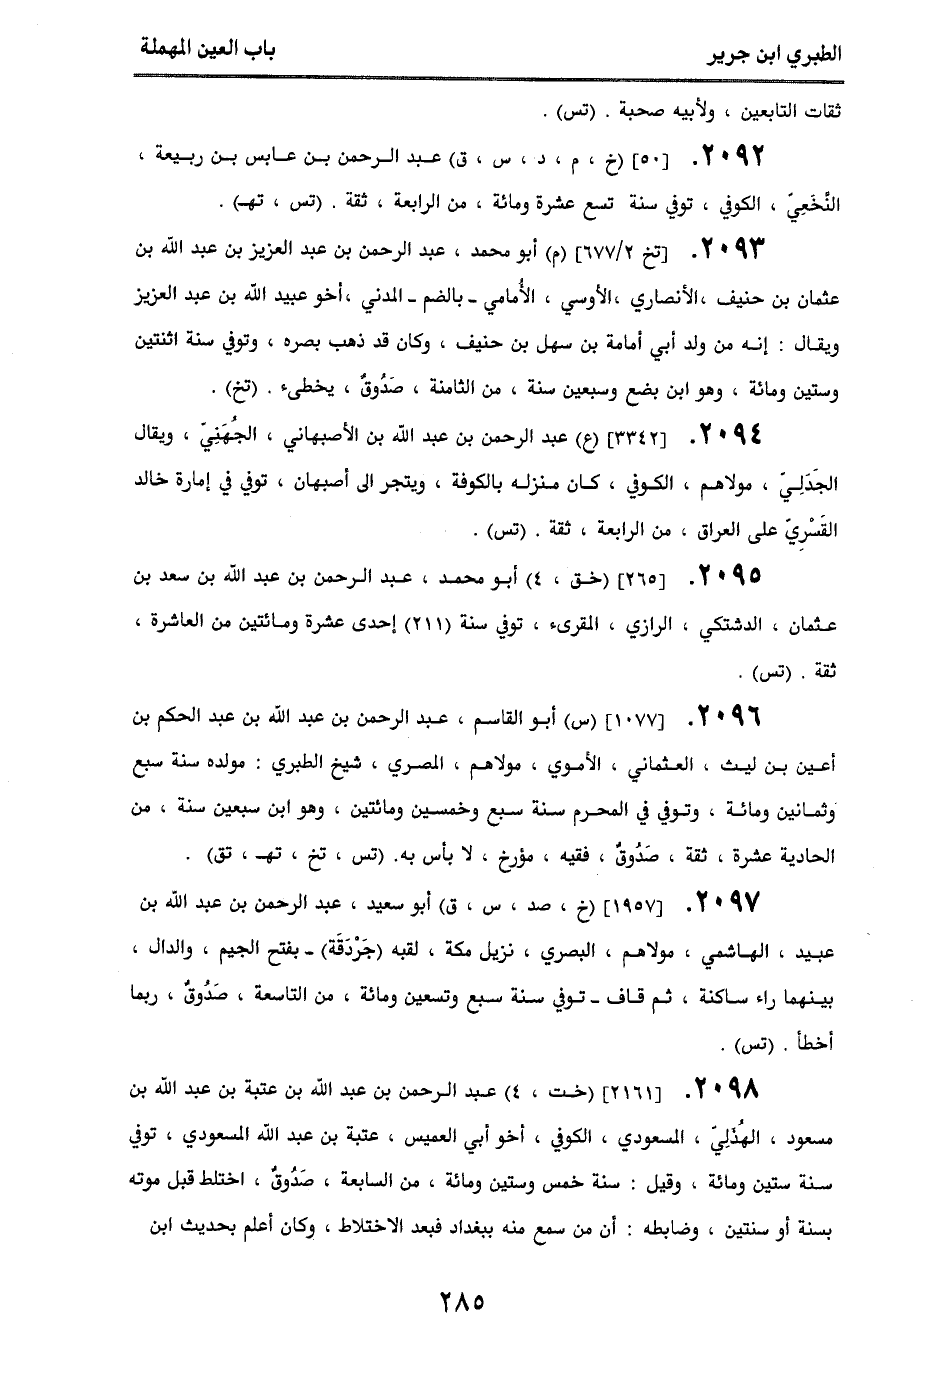 الطبري ابن جرير
باب العين المهملة
ثقات التابعين ، ولأبيه صحبة . (تس) .
٢٠٩٢. [٥٠] (خ ، م ، د ، س ، ق) عبد الرحمن بن عابس بن ربيعة ،
النَّخَعِيّ ، الكوفي ، توفي سنة تسع عشرة ومائة ، من الرابعة ، ثقة . (تس ، تهـ) .
٢٠٩٣. [تخ ٦٧٧/٢] (م) أبو محمد ، عبد الرحمن بن عبد العزيز بن عبد الله بن
عثمان بن حنيف ،الأنصاري ،الأوسي ، الأُمامي ـ بالضم ـ المدني ،أخو عبيد الله بن عبد العزيز
ويقال : إنه من ولد أبي أمامة بن سهل بن حنيف ، وكان قد ذهب بصره ، وتوفي سنة اثنتين
وستين ومائة ، وهو ابن بضع وسبعين سنة ، من الثامنة ، صَدُوقٌ ، يخطىء . (تخ) .
٢٠٩٤. [٣٣٤٢] (ع) عبد الرحمن بن عبد الله بن الأصبهاني ، الجُهَنِيّ ، ويقال
الجَدَلِيّ ، مولاهم ، الكوفي ، كان منزله بالكوفة ، ويتجر الى أصبهان ، توفي في إمارة خالد
القَسْرِيّ على العراق ، من الرابعة ، ثقة . (تس) .
٢٠٩٥. [٢٦٥] (خق ، ٤) أبو محمد ، عبد الرحمن بن عبد الله بن سعد بن
عثمان ، الدشتكي ، الرازي ، المقرىء ، توفي سنة (٢١١) إحدى عشرة ومائتين من العاشرة ،
ثقة . (تس) .
٢٠٩٦. [١٠٧٧] (س) أبو القاسم ، عبد الرحمن بن عبد الله بن عبد الحكم بن
أعين بن ليث ، العثماني ، الأموي ، مولاهم ، المصري ، شيخ الطبري : مولده سنة سبع
وثمانين ومائة ، وتوفي في المحرم سنة سبع وخمسين ومائتين ، وهو ابن سبعين سنة ، من
الحادية عشرة ، ثقة ، صَدُوقٌ ، فقيه ، مؤرخ ، لا بأس به. (تس ، تخ ، تهـ ، تق) .
٢٠٩٧. [١٩٥٧] (خ ، صد ، س ، ق) أبو سعيد ، عبد الرحمن بن عبد الله بن
عبيد ، الهاشمي ، مولاهم ، البصري ، نزيل مكة ، لقبه (جَرْدَقَة) ـ بفتح الجيم ، والدال ،
بينهما راء ساكنة ، ثم قاف ـ توفي سنة سبع وتسعين ومائة ، من التاسعة ، صَدُوقٌ ، ربما
أخطأ . (تس) .
٢٠٩٨. [٢١٦١] (خت ، ٤) عبد الرحمن بن عبد الله بن عتبة بن عبد الله بن
مسعود ، الهُذَلِيّ ، المسعودي ، الكوفي ، أخو أبي العميس ، عتبة بن عبد الله المسعودي ، توفي
سنة ستين ومائة ، وقيل : سنة خمس وستين ومائة ، من السابعة ، صَدُوقٌ ، اختلط قبل موته
بسنة أو سنتين ، وضابطه : أن من سمع منه ببغداد فبعد الاختلاط ، وكان أعلم بحديث ابن
٢٨٥